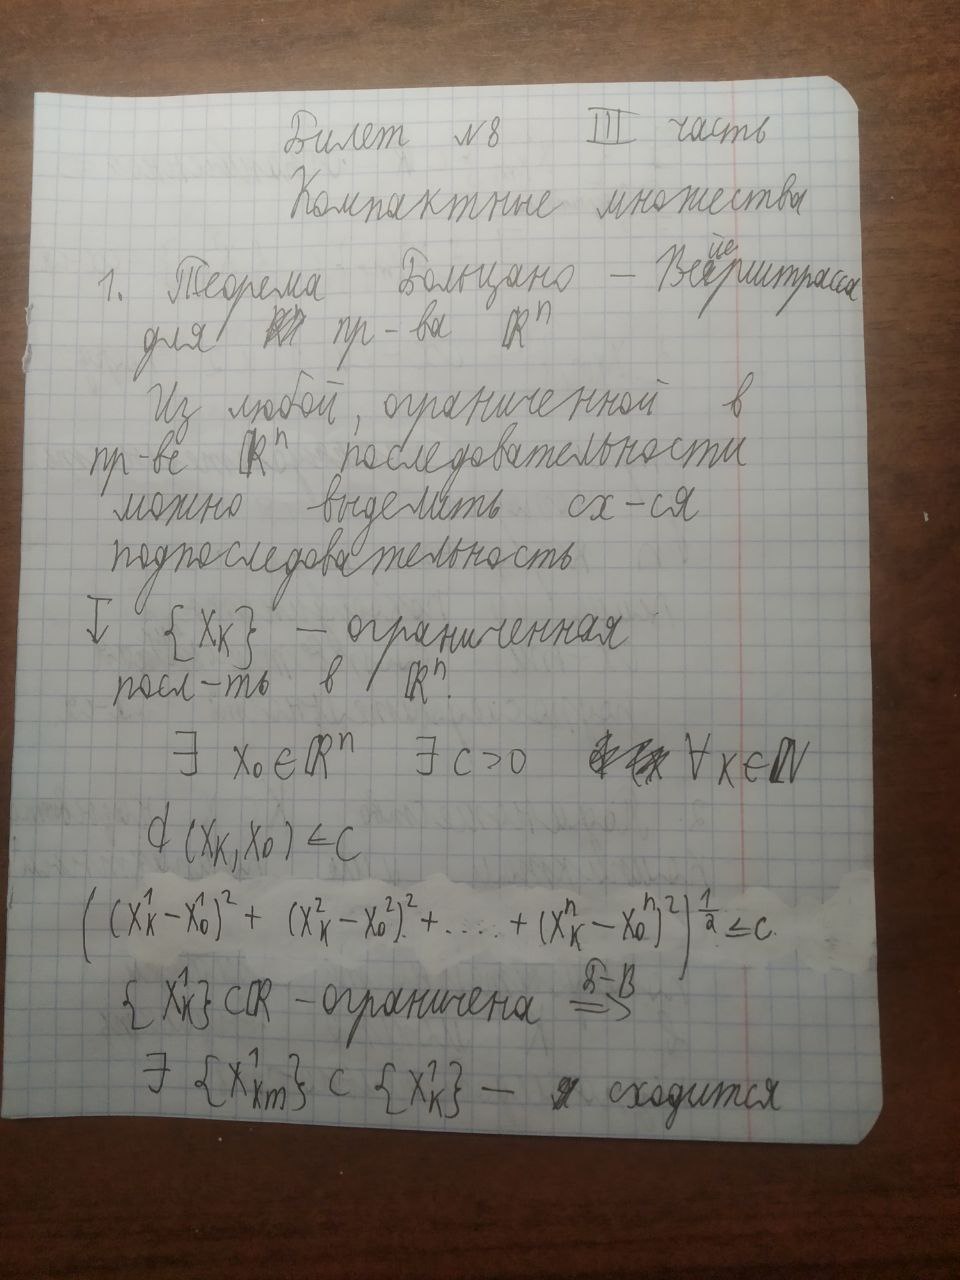 Билет №8 III часть
Компактные множества
1. Теорема Больцано – Вейерштрасса
для пр-ва ℝⁿ
Из любой, ограниченной в
пр-ве ℝⁿ последовательности
можно выделить сх-ся
подпоследовательность
{x_k} – ограниченная
посл-ть в ℝⁿ.
∃ x₀ ∈ ℝⁿ ∃ c > 0 ∀ k ∈ ℕ
d(x_k, x₀) ≤ c
((x_k¹ – x₀¹)² + (x_k² – x₀²)² + ..... + (x_kⁿ – x₀ⁿ)²)^{1/2} ≤ c
{x_k¹} ⊂ ℝ – ограничена Б-В ⇒
∃ {x¹_{k_m}} ⊂ {x_k¹} – сходится